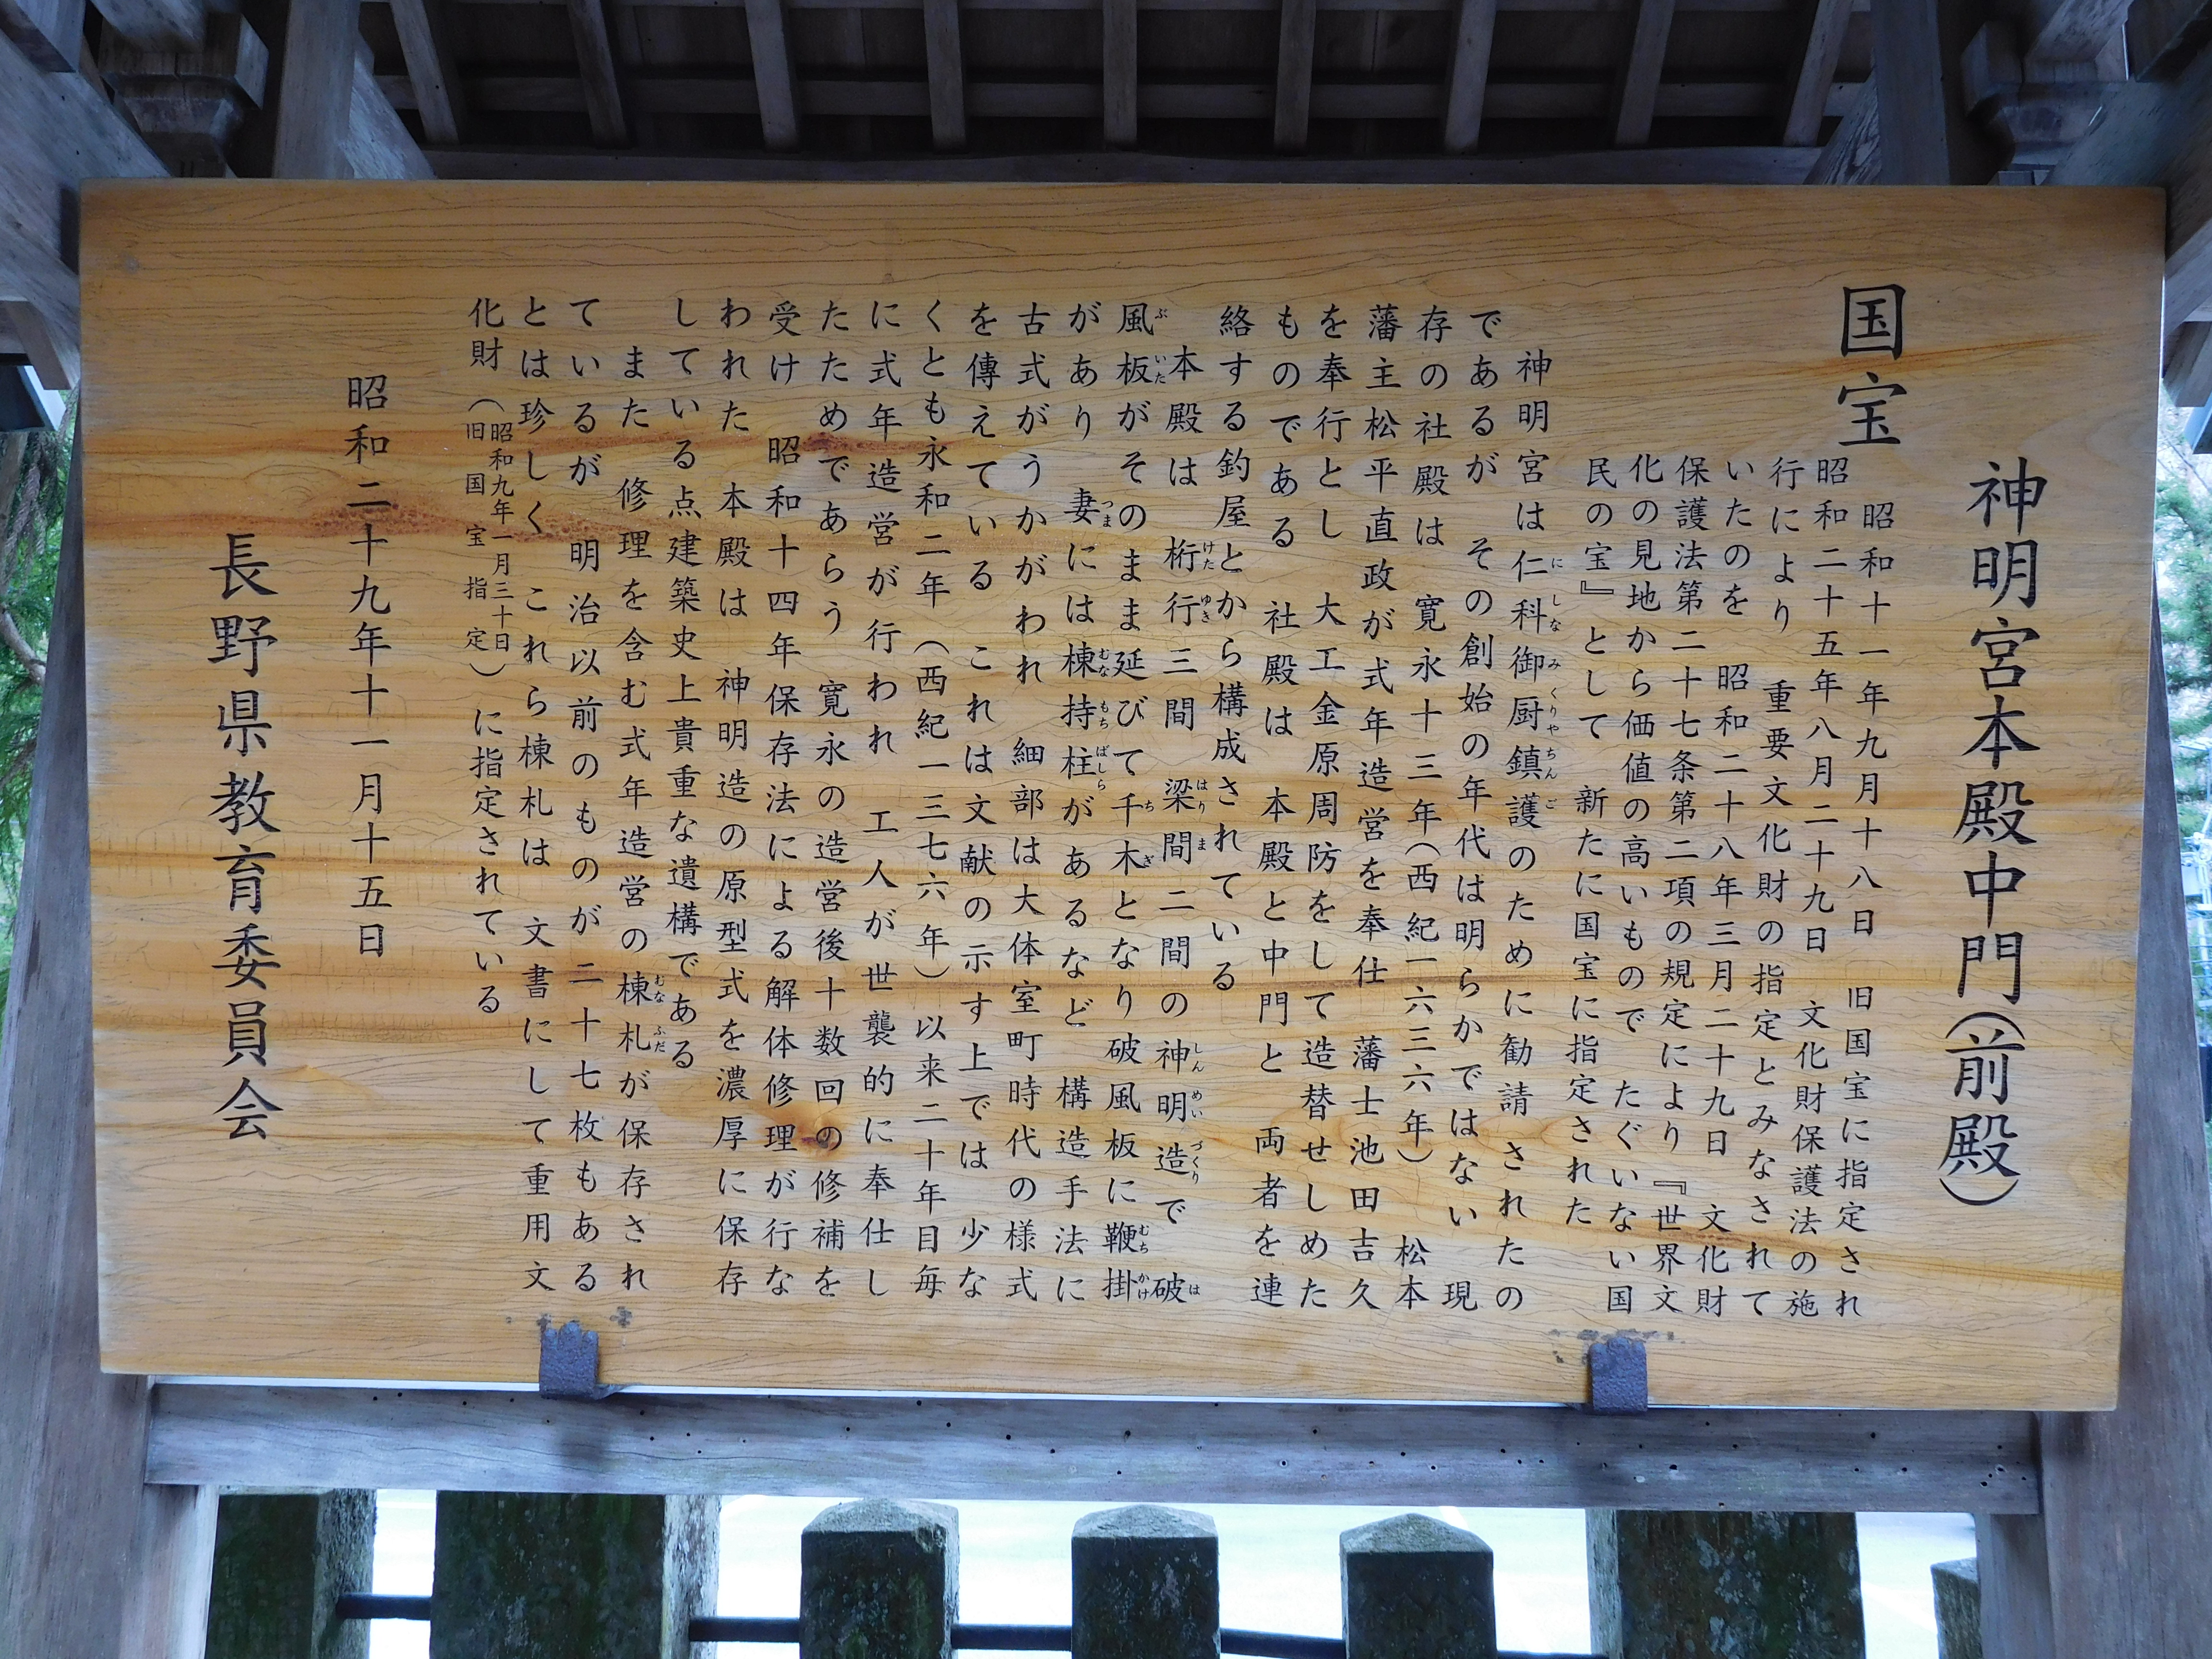 神明宮本殿中門(前殿)
国宝
昭和十一年九月十八日　旧国宝に指定され
昭和二十五年八月二十九日　文化財保護法の施
行により　重要文化財の指定とみなされて
いたのを　昭和二十八年三月二十九日　文化財
保護法第二十七条第二項の規定により『世界文
化の見地から価値の高いもので　たぐいない国
民の宝』として　新たに国宝に指定された
神明宮は仁科御厨鎮護のために勧請されたの
であるが　その創始の年代は明らかではない　現
存の社殿は　寛永十三年(西紀一六三六年)　松本
藩主松平直政が式年造営を奉仕　藩士池田吉久
を奉行とし　大工金原周防をして造替せしめた
ものである　社殿は　本殿と中門と　両者を連
絡する釣屋とから構成されている
本殿は桁行三間　梁間二間の神明造で　破
風板がそのまま延びて千木となり破風板に鞭掛
があり　妻には棟持柱があるなど　構造手法に
古式がうかがわれ　細部は大体室町時代の様式
を傳えている　これは文献の示す上では　少な
くとも永和二年　(西紀一三七六年)以来二十年目毎
に式年造営が行われ　工人が世襲的に奉仕し
たためであらう　寛永の造営後十数回の修補を
受け　昭和十四年保存法による解体修理が行な
われた　本殿は　神明造の原型式を濃厚に保存
している点建築史上貴重な遺構である
また　修理を含む式年造営の棟札が保存され
ているが　明治以前のものが二十七枚もある
とは珍しく　これら棟札は　文書にして重用文
化財(昭和九年一月三十日旧国宝指定)に指定されている
昭和二十九年十一月十五日
長野県教育委員会